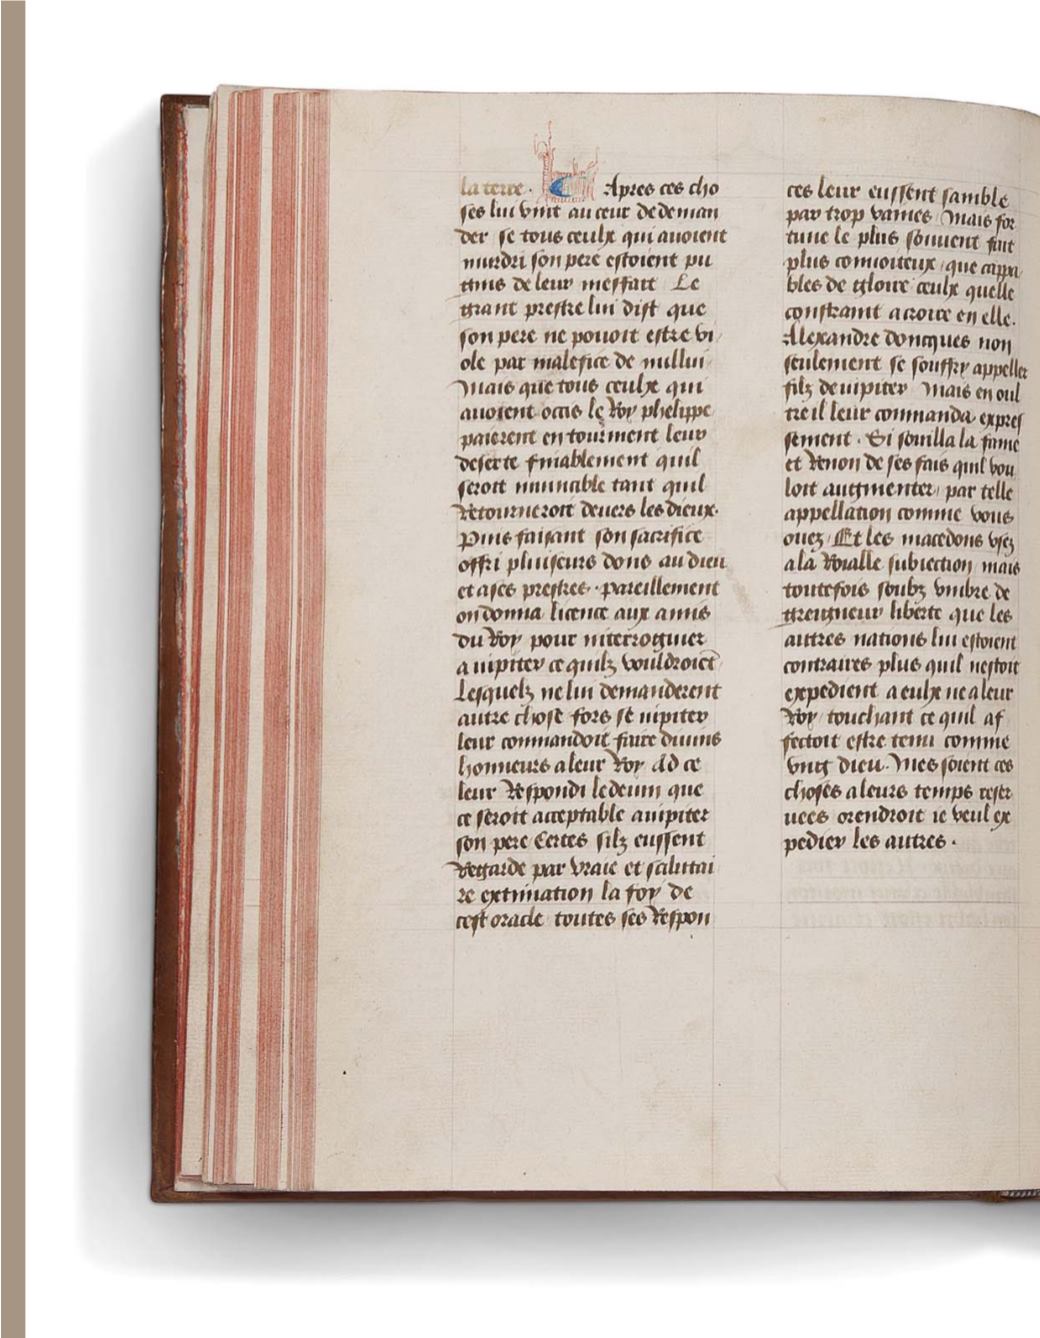 la terre · Apres ces cho
ses lui vint au ceur de deman
der se tous ceulx qui auoient
murdri son pere estoient pu
gnis de leur meffait Le
grant prestre lui dist que
son pere ne pouoit estre vi
ole par malefice de nullui
Mais que tous ceulx qui
auoient occis le Roy phelippe
paierent en tourment leur
deserte finablement quil
seroit inuincible tant quil
Retourneroit deuers les dieux·
Puis faisant son sacrifice
offri pluiseurs dons au dieu
et a ses prestres · pareillement
on donna licence aux amis
du Roy pour interroguier
a iupiter ce quilz vouldroiet
Lesquelz ne lui demanderent
autre chose fors se iupiter
leur commandoit faire diuins
honneurs a leur Roy Ad ce
leur Respondi le deuin que
ce seroit acceptable a iupiter
son pere Certes silz eussent
Regarde par vraie et salutai
re extimation la foy de
cest oracle toutes ses Respon
ces leur eussent samble
par trop vaines Mais for
tune le plus souuent fait
plus conuoiteux que cappa
bles de gloire ceulx quelle
constraint a croire en elle.
Alexandre doncques non
seulement se souffry appeller
filz de iupiter Mais en oul
tre il leur commanda expres
sement · Si souilla la fame
et Renon de ses fais quil vou
loit augmenter par telle
appellation comme vous
ouez Et les macedons vsez
a la Roialle subiection mais
toutefois soubz vmbre de
greigneur liberte que les
autres nations lui estoient
contraires plus quil nestoit
expedient a eulx ne a leur
Roy touchant ce quil af
fectoit estre tenu comme
vng dieu· Mes soient ces
choses a leurs temps reser
uees orendroit ie veul ex
pedier les autres ·